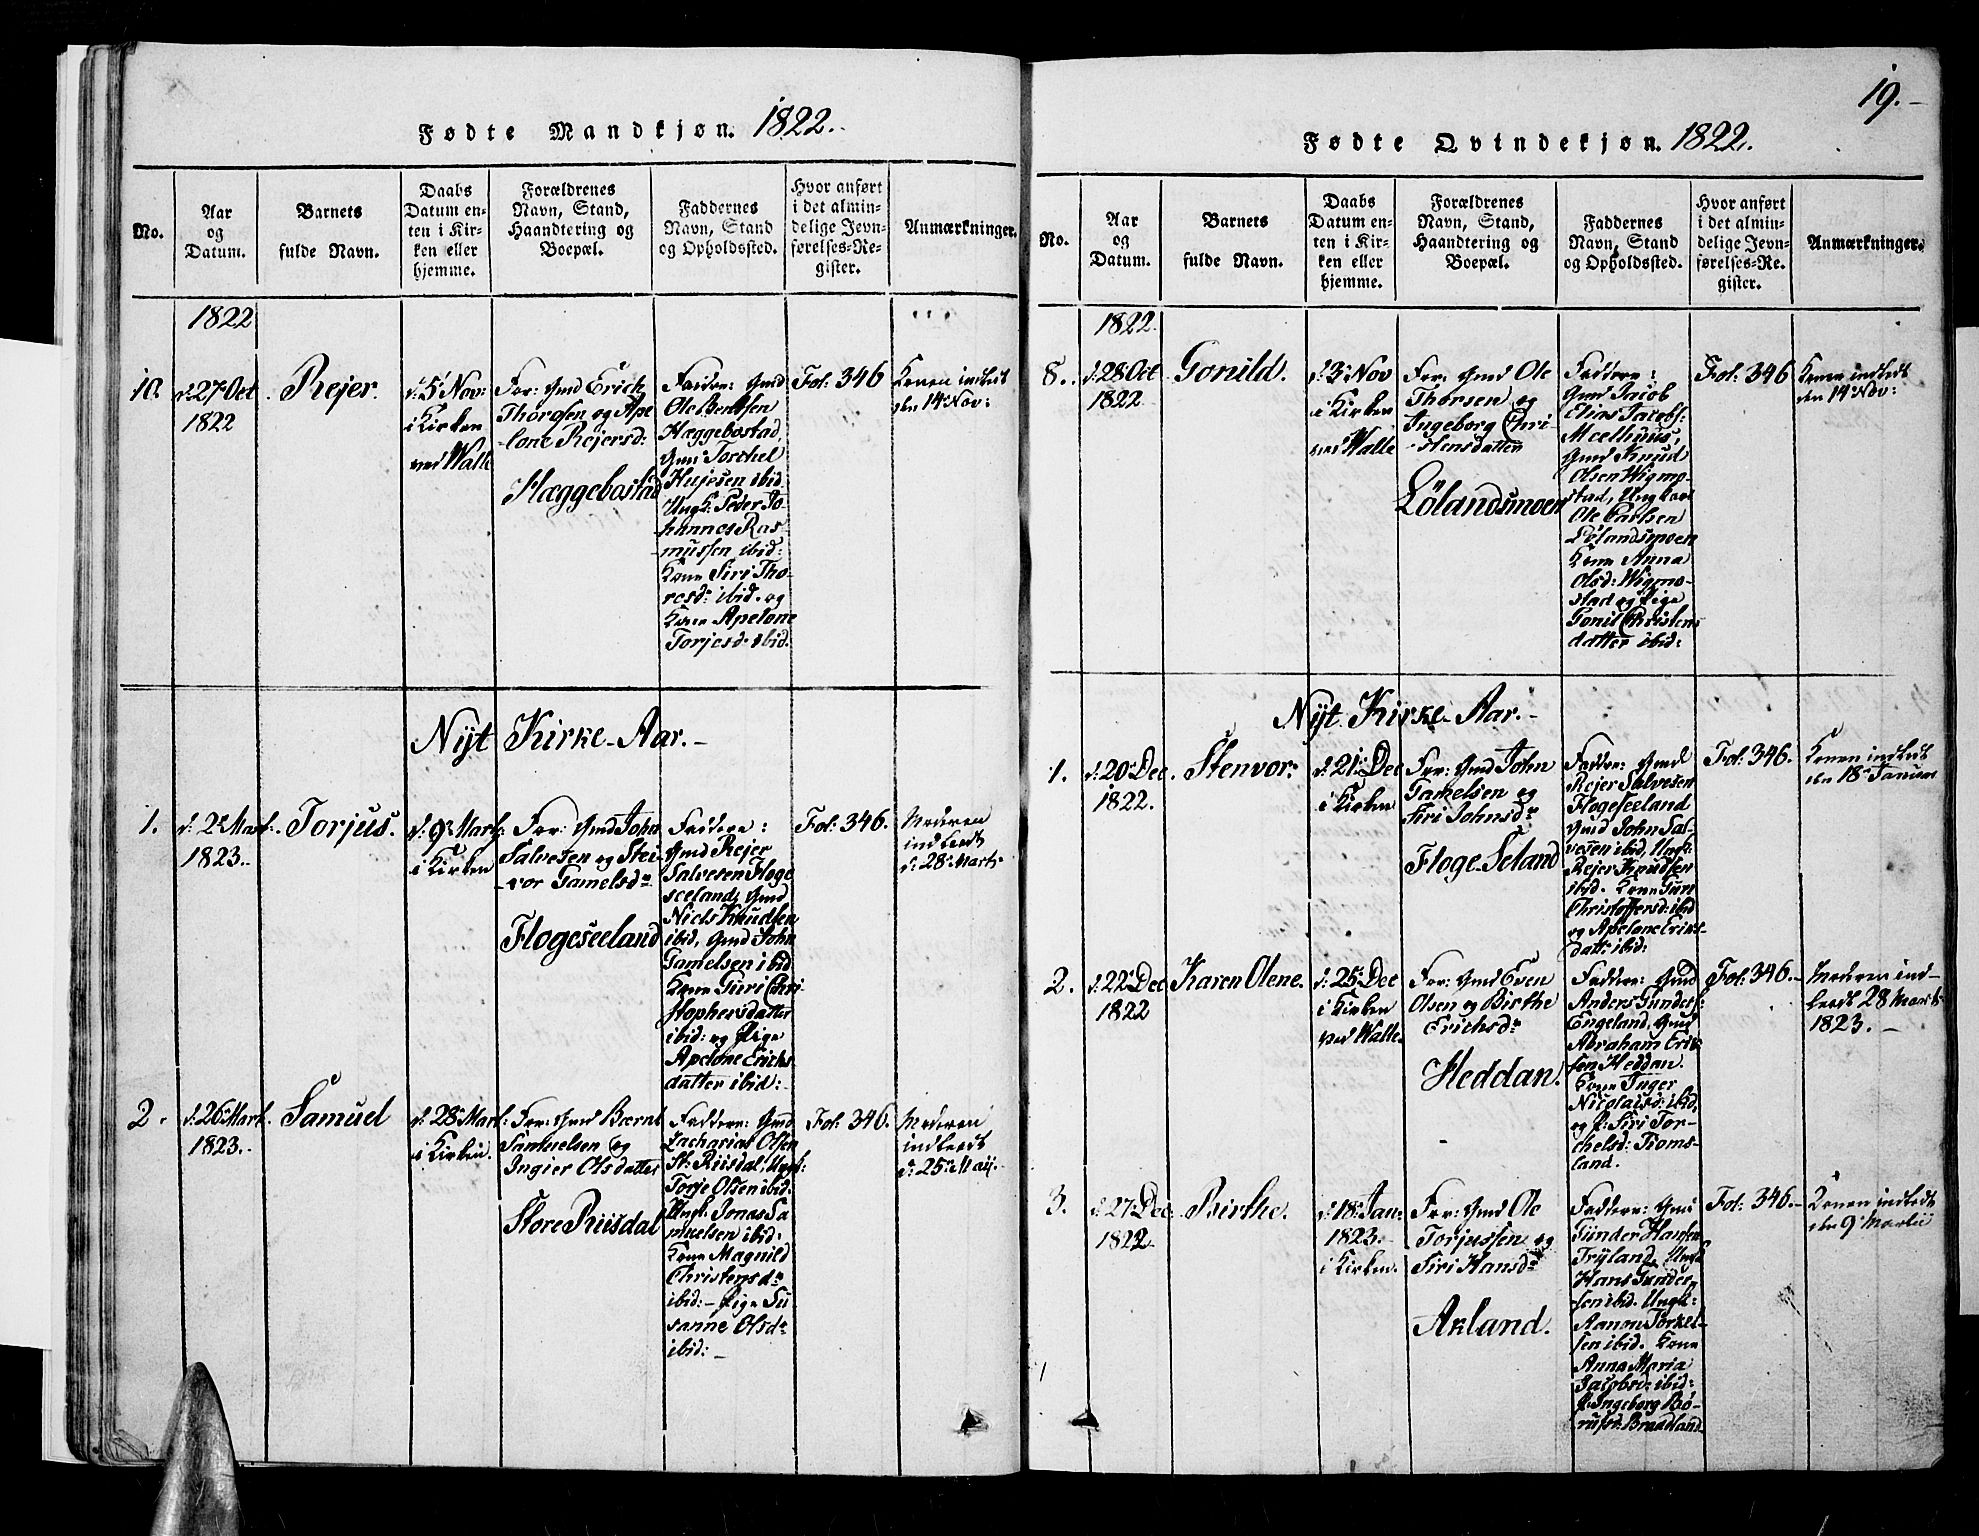 Fødte Mandkjøn. 1822.
No.
Aar
og
Datum.
Barnets
fulde Navn.
Daabs
Datum en-
ten i Kir-
ken eller
hjemme.
Forældrenes
Navn, Stand,
Haandtering og
Boepæl.
Faddernes
Navn, Stand
og Opholdssted.
Hvor anført
i det almin-
delige Jevn-
førelses-Re-
gister.
Anmærkninger.
1822
10.
d: 27 Oct
1822
Rejer.
d: 5 Nov:
i Kirken
ved Walle
For: Gmd Erich
Thorsen og Ape
lone Rejersd:
Hæggebostad
Faddre: Gmd
Ole Berntsen
Hæggebostad,
Gmd Torchel
ibid.
Ungk: Peder Jo-
hannes Ras-
mussen ibid:
Kone Siri Tho-
resd: ibid. og
Kone Apelone
Torjesd: ibid.
Fol: 346
Konen indledt
den 14 Nov:
Nyt Kirke-Aar.-
1.
d: 2 Mart.
1823.
Torjus.
d: 9 Mart:
i Kirken
For: Gmd John
Salvesen og Sten-
vor Gamelsdr
Flogeseeland
Faddere:
Gmd Rejer
Salvesen Floge
seeland, Gmd
Niels Knudsen
ibid, Gmd John
Gamelsen ibid
Kone Guri Chri-
stophersdatter
ibid: og Pige
Apelone Erichs
datter ibid:
Fol: 346.
Moderen
indledt
d: 28 Marts
2.
d: 26 Mart.
1823.
Samuel
d: 28 Mart.
i Kirken
For: Gmd Bærnt
Samuelsen og
Ingier Olsdatter
Store Riisdal
Faddere: Gmd
Zacharias Olsen
St: Riisdal, Ungk:
Torje Olsen ibid:
Ungk. Jonas Sa-
muelsen ibid:
Kone Magnild
Christensdr
ibid:- Pige Su
sanne Olsdr
ibid:-
Fol: 346.
Moderen
indledt
d: 25 Maij.
19.-
Fødte Qvindekjøn. 1822.
No.
Aar
og
Datum.
Barnets
fulde Navn.
Daabs
Datum en-
ten i Kir-
ken eller
hjemme.
Forældrenes
Navn, Stand,
Haandtering og
Boepæl.
Faddernes
Navn, Stand
og Opholdssted.
Hvor anført
i det almin-
delige Jevn-
førelses-Re-
gister.
Anmærkninger.
1822.
8.
d: 28 Oct
1822.
Gonild.
d: 3 Nov
i Kirken
ved Walle
For: Gmd Ole
Thorsen og
Ingeborg Chri-
stensdatter
Lølandsmoen
Faddere:
Gmd Jacob
Elias Jacobs:
Moelhuus,
Gmd Knud
Olsen Wigmo
stad, Ungkarl
Ole Carlsen
Lølandsmoen
Kone Anna
Olsd: Wigmo-
stad og Pige
Gonil Christens
datter ibid:
Fol: 346
Konen indledt
den 14 Nov:
Nyt Kirke-Aar.-
1.
d: 20 Dec.
1822.
Stenvor.
d: 21 Dec
i Kirken
For: Gmd John
Gamelsen og
Siri Johnsdr
Floge-Seland
Faddre: Gmd
Rejer Salvesen
Flogeseeland
Gmd John Sal-
vesen ibid, Ungk:
Rejer Knudsen
ibid. Kone Guri
Christoffersd: ibid
og Apelone Eriks-
datt: ibid:
Fol: 346.
Konen indledt
den 18 Januar
2.
d: 22 Dec
1822
Karen Olene.
d: 25 Dec
i Kirken
ved Walle.
For: Gmd Even
Olsen og Birthe
Erichsdr
Heddan.
Faddre: Gmd
Anders Gunders:
Engeland, Gmd
Abraham Erik
sen Heddan.
Kone Inger
Nicolaisd: ibid,
og P. Siri Tor-
chelsd: Troms-
land.
Fol: 346.-
Moderen ind-
ledt 28 Marts
1823.-
3.
d: 27 Dec:
1822
Birthe.
d: 18 Jan:
1823.-
i Kirken.
For: Gmd Ole
Torjussen og
Siri Hansdr
Axland.
Faddere: Gmd
Gunder Hansen
Tryland, Ungk
Hans Gunder-
sen ibid. Ungk:
Aanon Torkel-
sen ibid. Kone
Anna Maria
Jacobsd: ibid:
P. Ingeborg Bø-
Braadland.
Fol: 346.-
Konen indledt
den 9 Martii